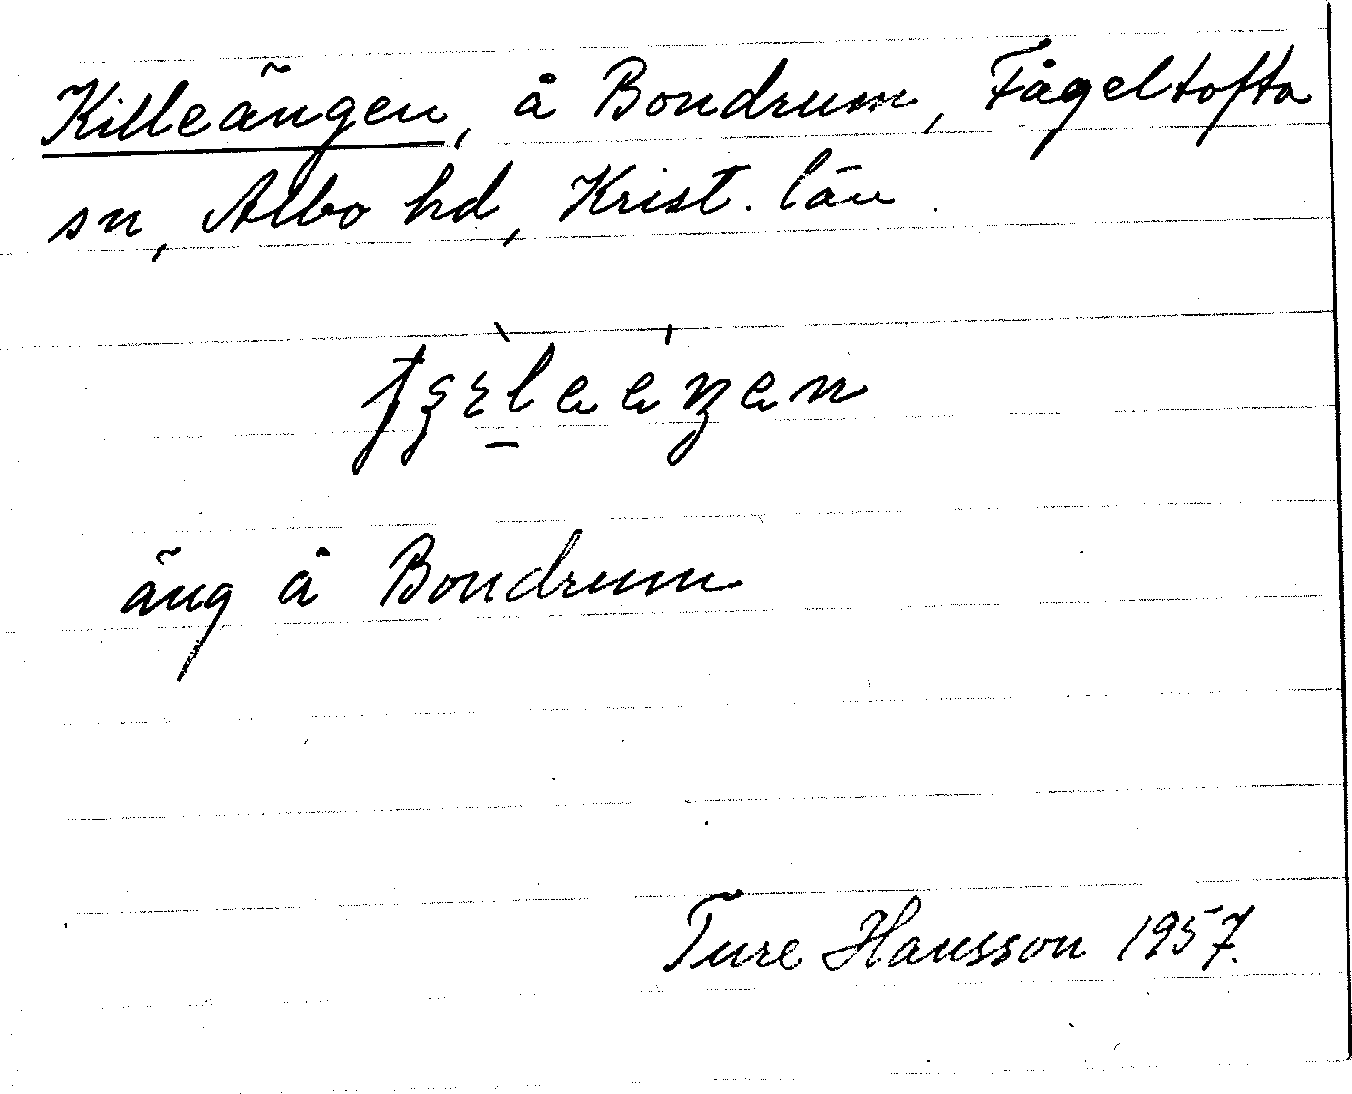 Killeängen, å Bondrum, Fågeltofta
sn, Albo hd, Krist. län.
äng å Bondrum
Ture Hansson 1957.